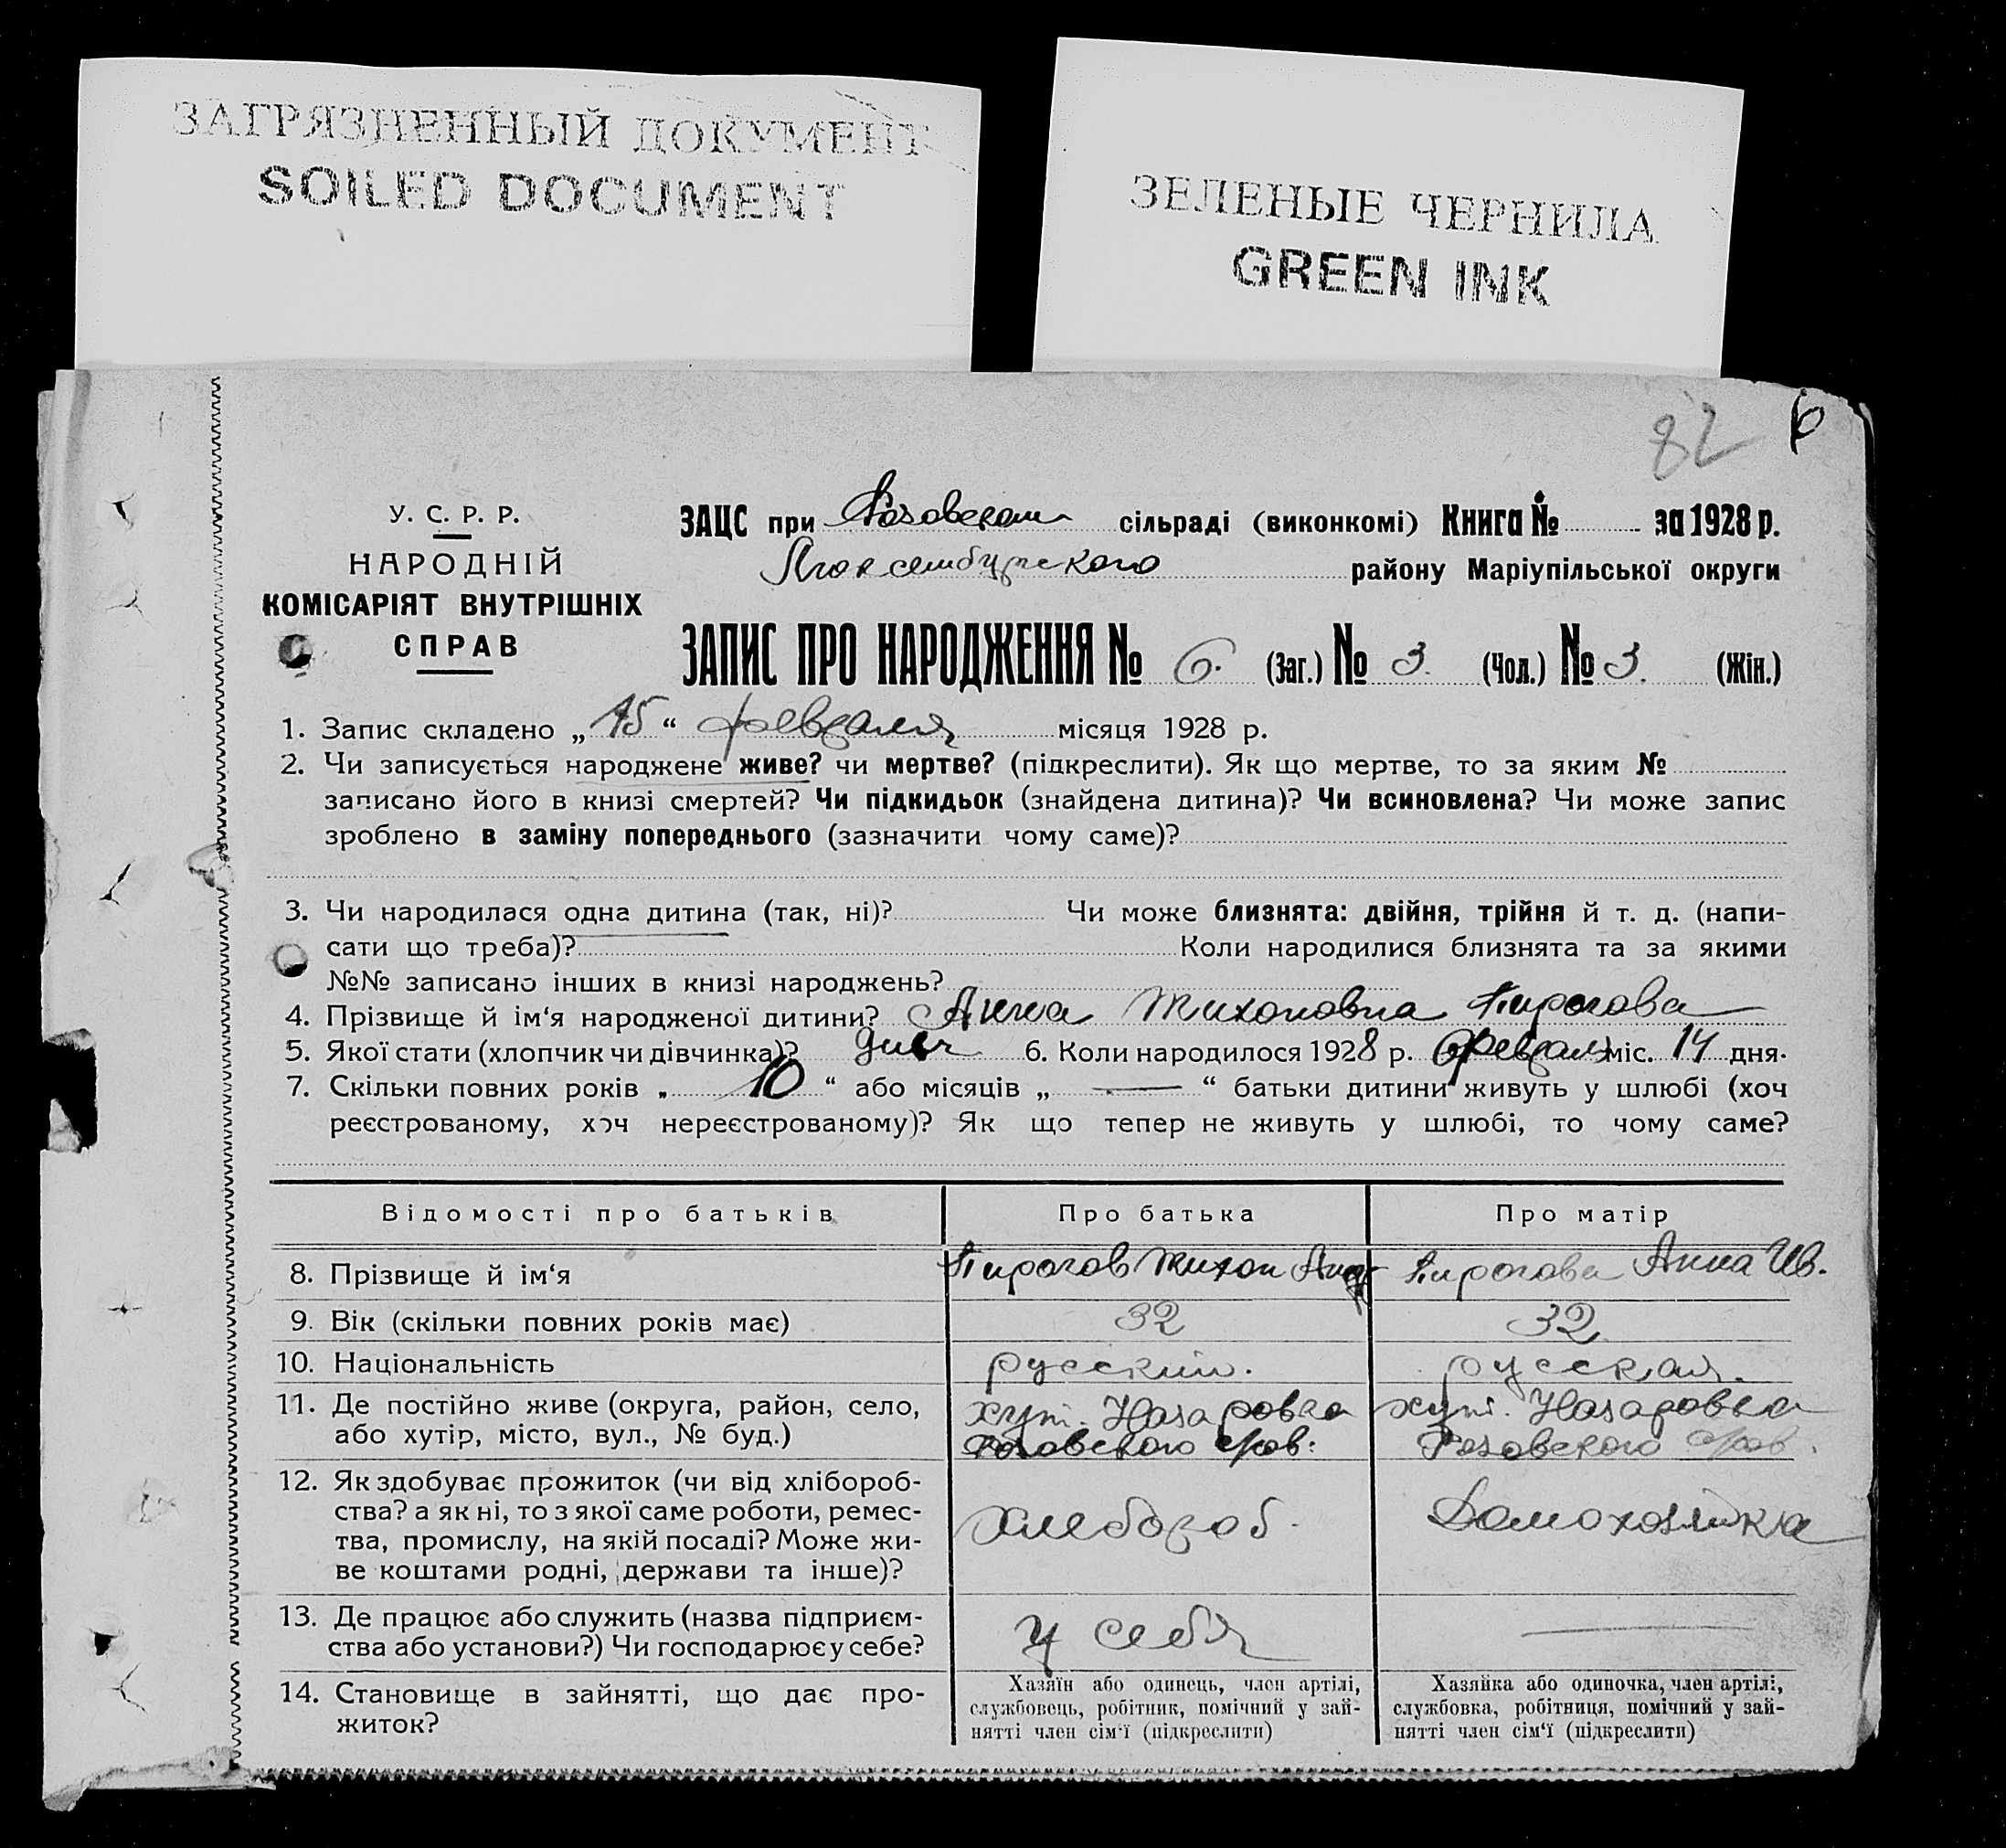 ЗАГРЯЗНЕННЫЙ ДОКУМЕНТ
SOILED DOCUMENT
ЗЕЛЕНЫЕ ЧЕРНИЛА
GREEN INK
82 6
У. С. Р. Р.
НАРОДНІЙ
КОМІСАРІЯТ ВНУТРІШНІХ
СПРАВ
ЗАЦС при Розовском сільраді (виконкомі) Книга № за 1928 р.
Люксембургского району Маріупільської округи
ЗАПИС ПРО НАРОДЖЕННЯ № 6. (Заг.) № 3. (Чол.) № 3. (Жін.)
1. Запис складено „15“ февраля місяця 1928 р.
2. Чи записується народжене живе? чи мертве? (підкреслити). Як що мертве, то за яким №
записано його в книзі смертей? Чи підкидьок (знайдена дитина)? Чи всиновлена? Чи може запис
зроблено в заміну попереднього (зазначити чому саме)?
3. Чи народилася одна дитина (так, ні)? Чи може близнята: двійня, трійня й т. д. (напи-
сати що треба)? Коли народилися близнята та за якими
№№ записано інших в книзі народжень?
4. Прізвище й ім‘я народженої дитини? Анна Тихоновна Пирогова
5. Якої стати (хлопчик чи дівчинка)? дивч 6. Коли народилося 1928 р. февраля міс. 14 дня.
7. Скільки повних років „ 10 “ або місяців „ — “ батьки дитини живуть у шлюбі (хоч
реєстрованому, хоч нереєстрованому)? Як що тепер не живуть у шлюбі, то чому саме?
Відомості про батьків Про батька Про матір
8. Прізвище й ім‘я Пирогов Тихон Анд Пирогова Анна Ив.
9. Вік (скільки повних років має) 32 32
10. Національність русский. русская.
11. Де постійно живе (округа, район, село,
або хутір, місто, вул., № буд.)
хут. Назаровка
Розовского
хут. Назаровка
Розовского
12. Як здобуває прожиток (чи від хлібороб-
ства? а як ні, то з якої саме роботи, ремес-
тва, промислу, на якій посаді? Може жи-
ве коштами родні, держави та інше)?
хлебороб.
Домохозяйка
13. Де працює або служить (назва підприєм-
ства або установи?) Чи господарює у себе?
у себя —
14. Становище в зайнятті, що дає про-
житок?
Хазяїн або одинець, член артілі,
службовець, робітник, помічний у зай-
нятті член сім‘ї (підкреслити)
Хазяйка або одиночка, член артілі,
службовка, робітниця, помічний у зай-
нятті член сім‘ї (підкреслити)